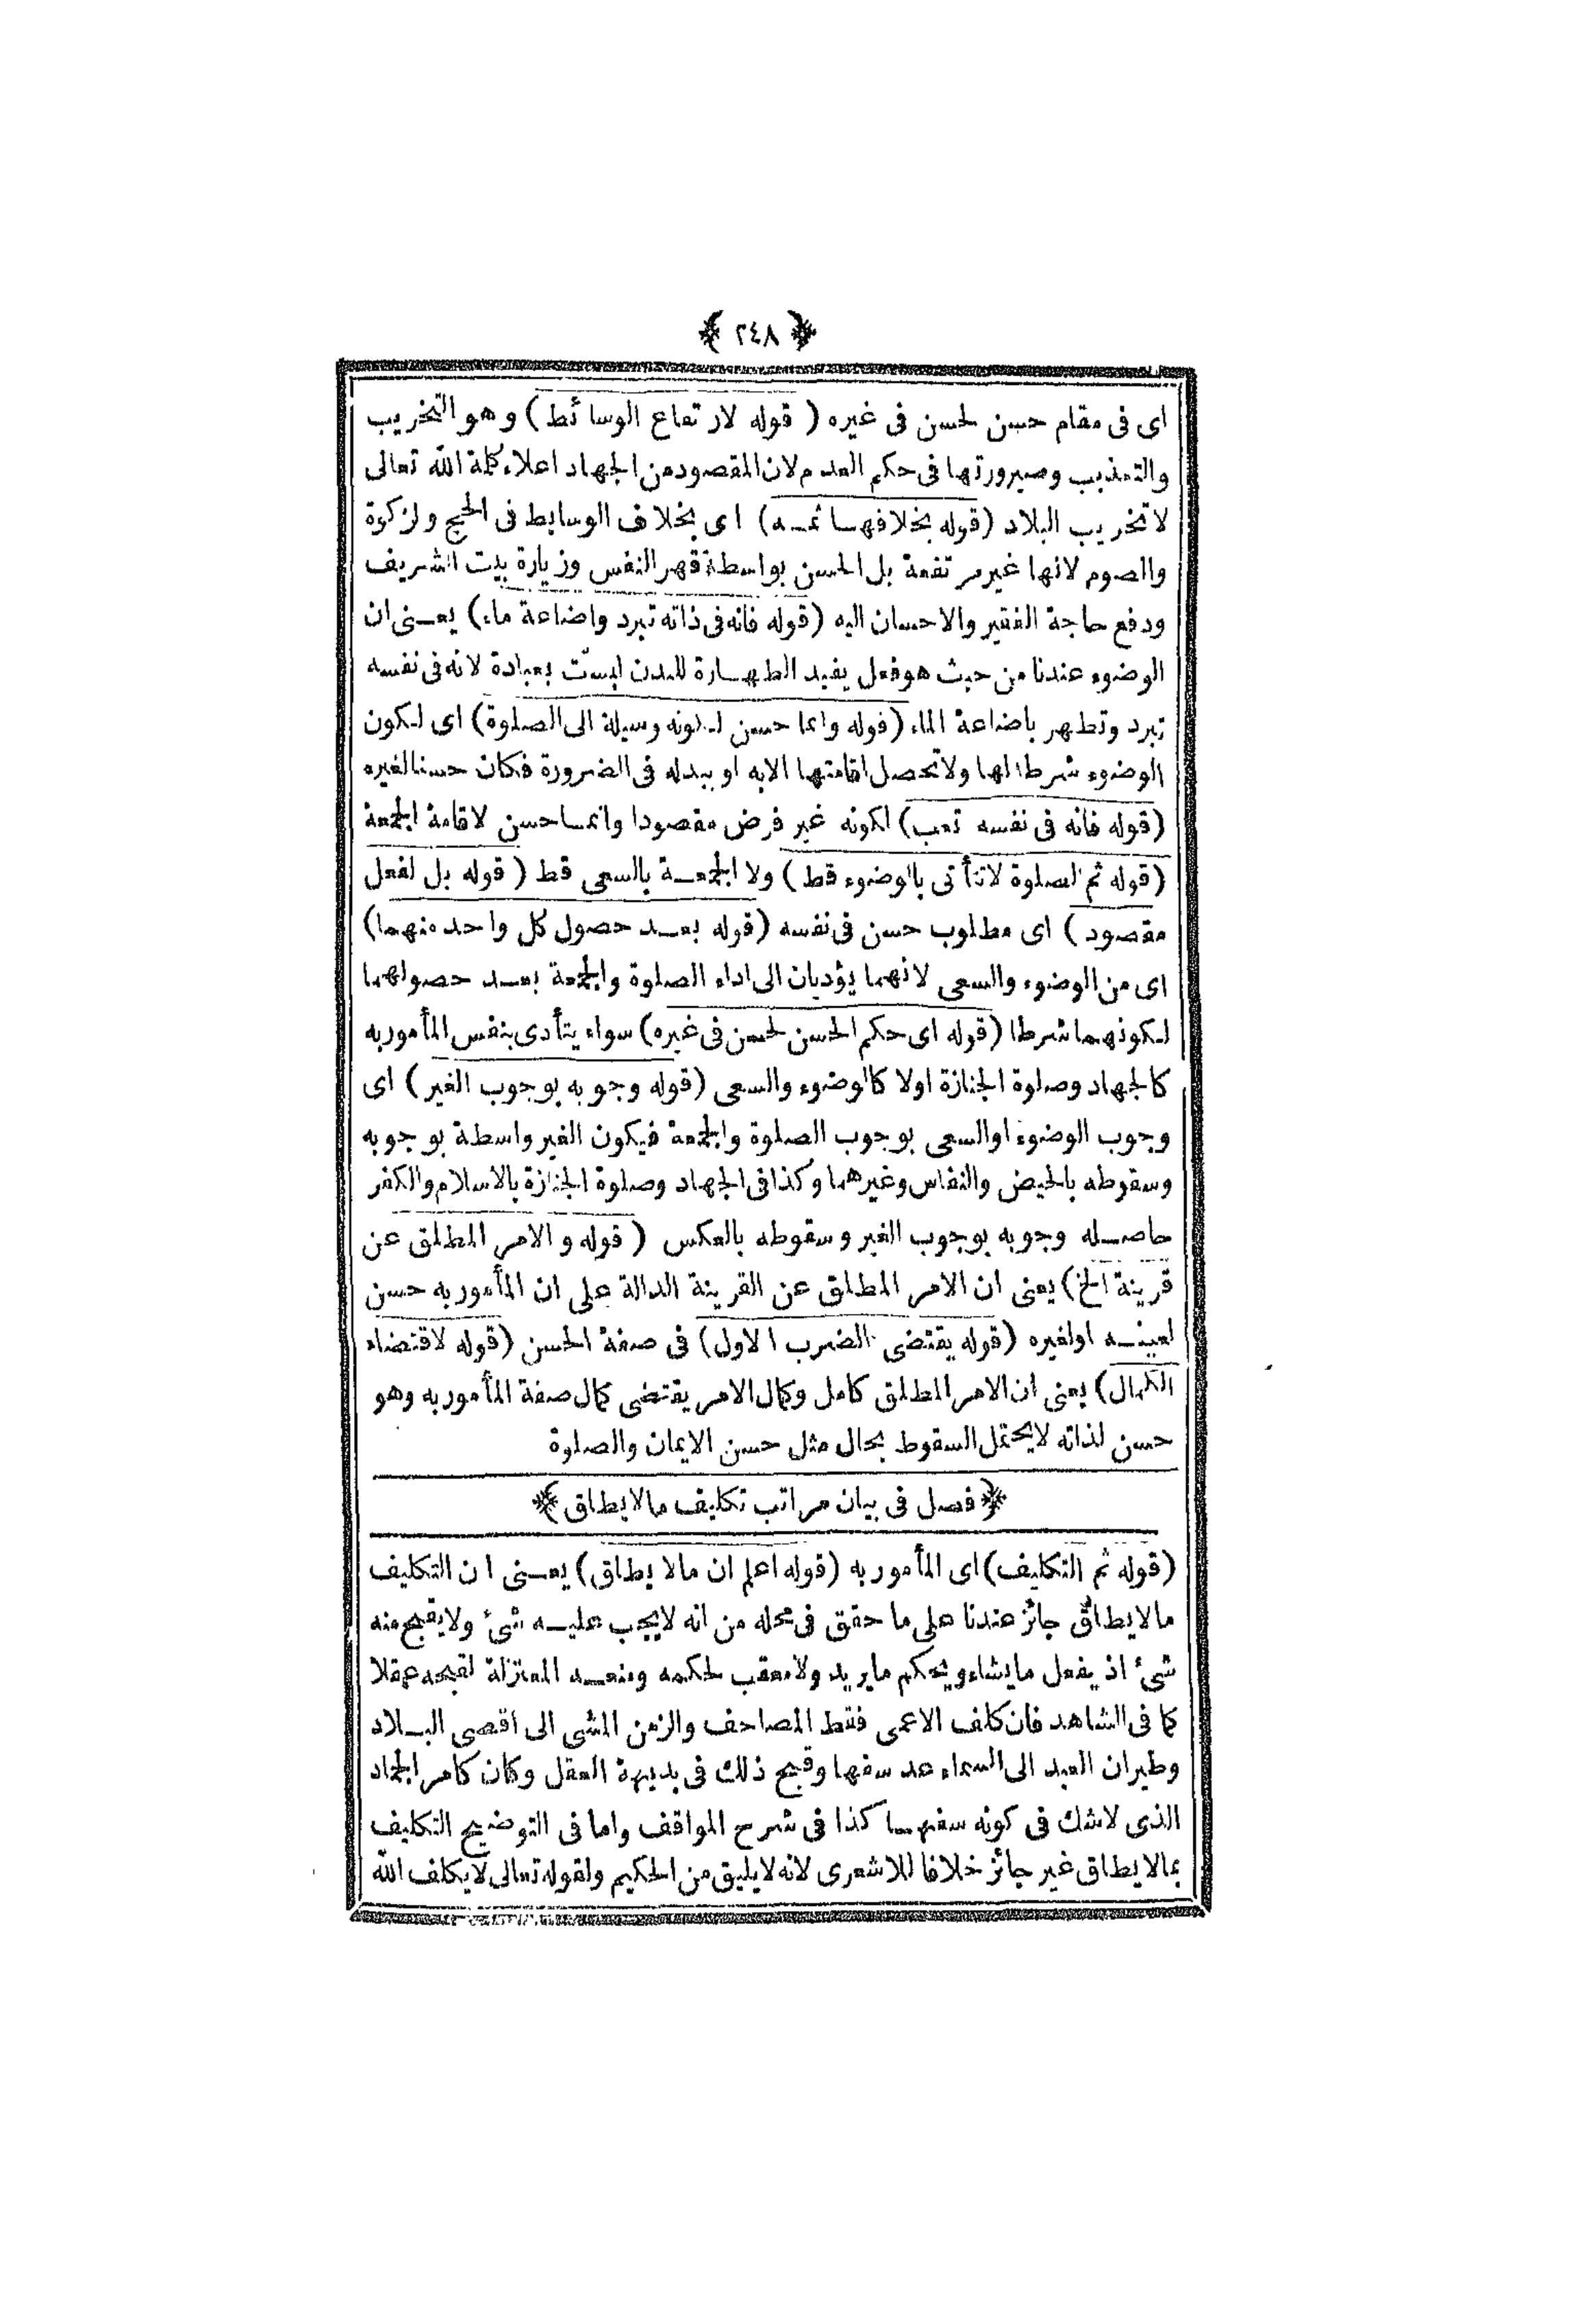 ﴿ ٢٤٨ ﴾
اى فى مقام حسن لحسن فى غيره ( قوله لارتفاع الوسائط ) وهو التخريب
والتعذيب وصيرورتها فى حكم العدم لان المقصود من الجهاد اعلاء كلمة الله تعالى
لا تخريب البلاد (قوله بخلافهما ثمه) اى بخلاف الوسايط فى الحج ولزكوة
والصوم لانها غير مرتفعة بل الحسن بواسطة قهر النفس وزيارة بيت الشريف
ودفع حاجة الفقير والاحسان اليه (قوله فانه فى ذاته تبرد واضاعة ماء) يعنى ان
الوضوء عندنا من حيث هو فعل يفيد الطهارة للبدن ليست بعبادة لانه فى نفسه
تبرد وتطهر باضاعة الماء (قوله وانما حسن لكونه وسيلة الى الصلوة) اى لكون
الوضوء شرطا لها ولا تحصل اقامتها الا به او ببدله فى الضرورة فكان حسنا لغيره
(قوله فانه فى نفسه تعب) لكونه غير فرض مقصودا وانما حسن لاقامة الجمعة
(قوله ثم الصلوة لا تتأتى بالوضوء قط ) ولا الجمعة بالسعى قط ( قوله بل لفعل
مقصود ) اى مطلوب حسن فى نفسه (قوله بعد حصول كل واحد منهما)
اى من الوضوء والسعى لانهما يؤديان الى اداء الصلوة والجمعة بعد حصولهما
لكونهما شرطا (قوله اى حكم الحسن لحسن فى غيره) سواء يتأدى بنفس المأمور به
كالجهاد وصلوة الجنازة اولا كالوضوء والسعى (قوله وجوبه بوجوب الغير ) اى
وجوب الوضوء او السعى بوجوب الصلوة والجمعة فيكون الغير واسطة بوجوبه
وسقوطه بالحيض والنفاس وغيرهما وكذا فى الجهاد وصلوة الجنازة بالاسلام والكفر
حاصله وجوبه بوجوب الغير وسقوطه بالعكس ( قوله والامر المطلق عن
قرينة الخ) يعنى ان الامر المطلق عن القرينة الدالة على ان المأمور به حسن
لعينه اولغيره (قوله يقتضى الضرب الاول) فى صفة الحسن (قوله لاقتضاء
الكمال) يعنى ان الامر المطلق كامل وكمال الامر يقتضى كمال صفة المأمور به وهو
حسن لذاته لا يحتمل السقوط بحال مثل حسن الايمان والصلوة
﴿ فصل فى بيان مراتب تكليف مالا يطاق ﴾
(قوله ثم التكليف) اى المأمور به (قوله اعلم ان مالا يطاق) يعنى ان التكليف
مالا يطاق جائز عندنا على ما حقق فى محله من انه لا يجب عليه شئ ولا يقبح منه
شئ اذ يفعل ما يشاء ويحكم ما يريد ولا معقب لحكمه ومنعه المعتزلة لقبحه عقلا
كما فى الشاهد فان كلف الاعمى فقط المصاحف والزمن المشى الى اقصى البلاد
وطيران العبد الى السماء عد سفها وقبح ذلك فى بديهة العقل وكان كامر الجماد
الذى لا شك فى كونه سفها كذا فى شرح المواقف واما فى التوضيح التكليف
بمالا يطاق غير جائز خلافا للاشعرى لانه لا يليق من الحكيم ولقوله تعالى لا يكلف الله